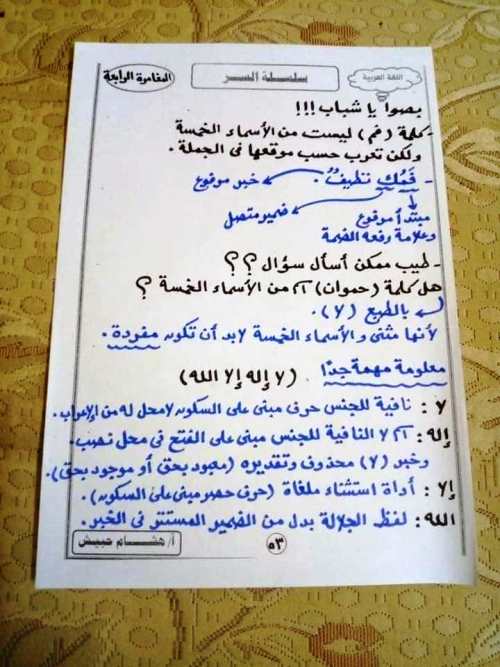 اللغة العربية
سلسلة السر
المغامرة الرابعة
بصوا يا شباب !!!
- كلمة (فم) ليست من الأسماء الخمسة
ولكن تعرب حسب موقعها فى الجملة .
- فَمُكِ نظيفٌ . خبر مرفوع
مبتدأ مرفوع ضمير متصل
وعلامة رفعه الضمة
- طيب ممكن أسأل سؤال ؟؟
هل كلمة (حموان) من الأسماء الخمسة ؟
بالطبع (لا) .
لأنها مثنى والأسماء الخمسة لابد أن تكون مفردة .
معلومة مهمة جدًا (لا إله إلا الله)
لا : نافية للجنس حرف مبنى على السكون لا محل له من الإعراب .
إله : اسم لا النافية للجنس مبنى على الفتح فى محل نصب .
وخبر (لا) محذوف وتقديره (معبود بحق أو موجود بحق) .
إلا : أداة استثناء ملغاة (حرف حصر مبنى على السكون) .
الله : لفظ الجلالة بدل من الضمير المستتر فى الخبر .
٥٣
أ/ هشام حبيش